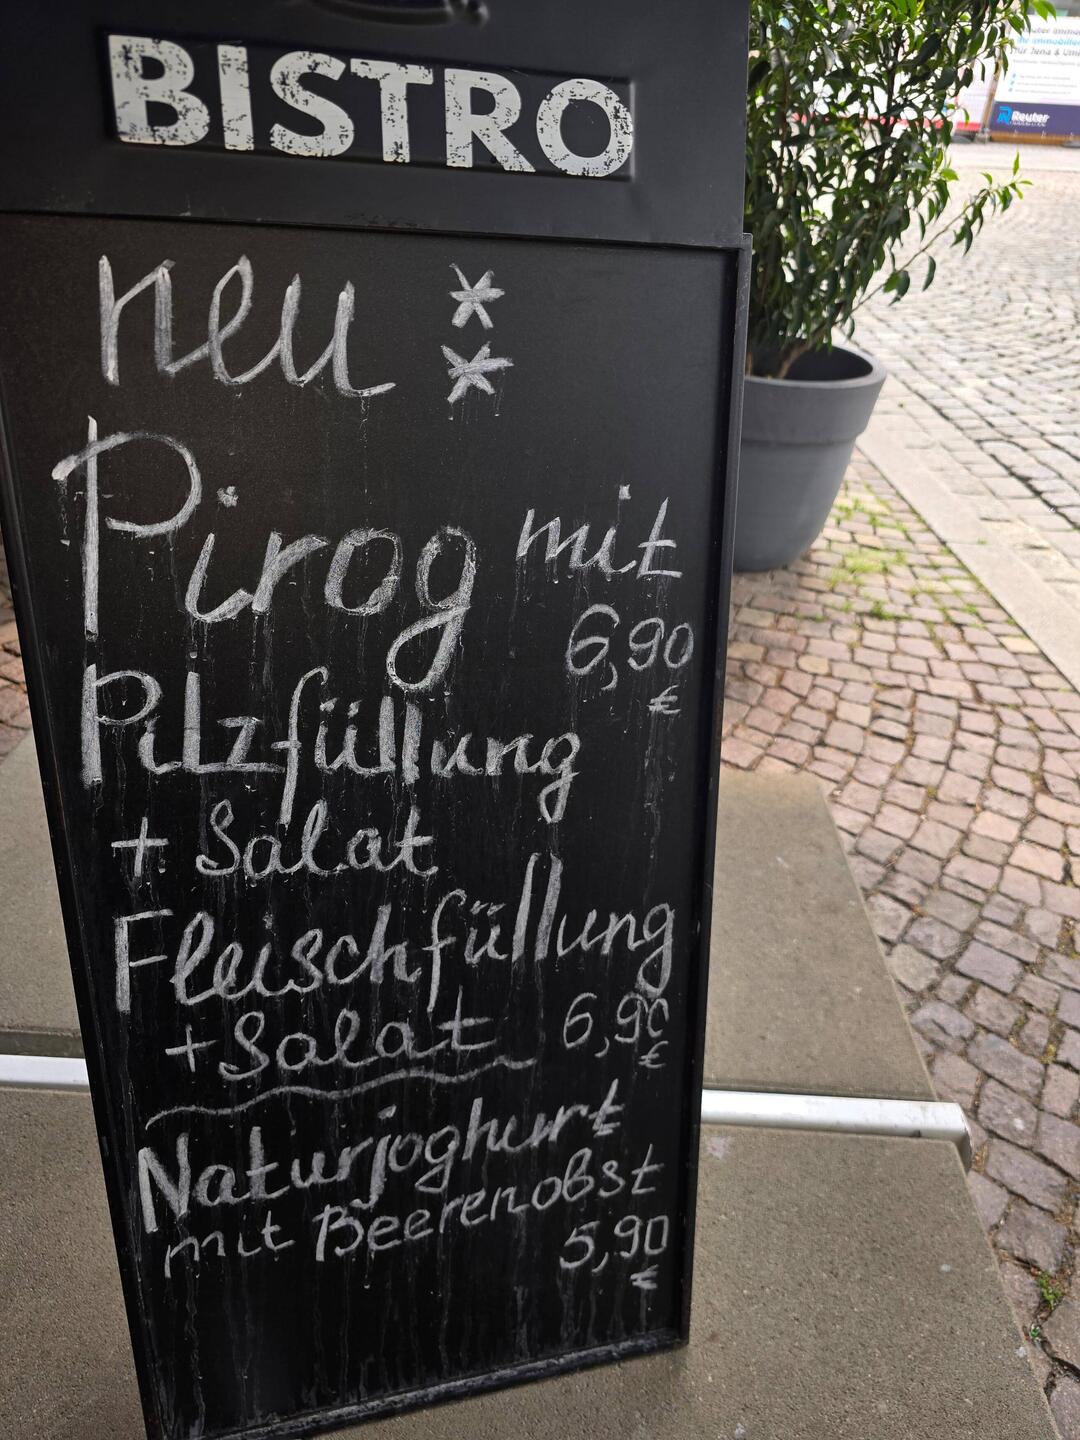 BISTRO
neu **
Pirog mit
6,90
€
Pilzfüllung
+ Salat
Fleischfüllung
+ Salat 6,90
€
Naturjoghurt
mit Beerenobst
5,90
€
Reuter